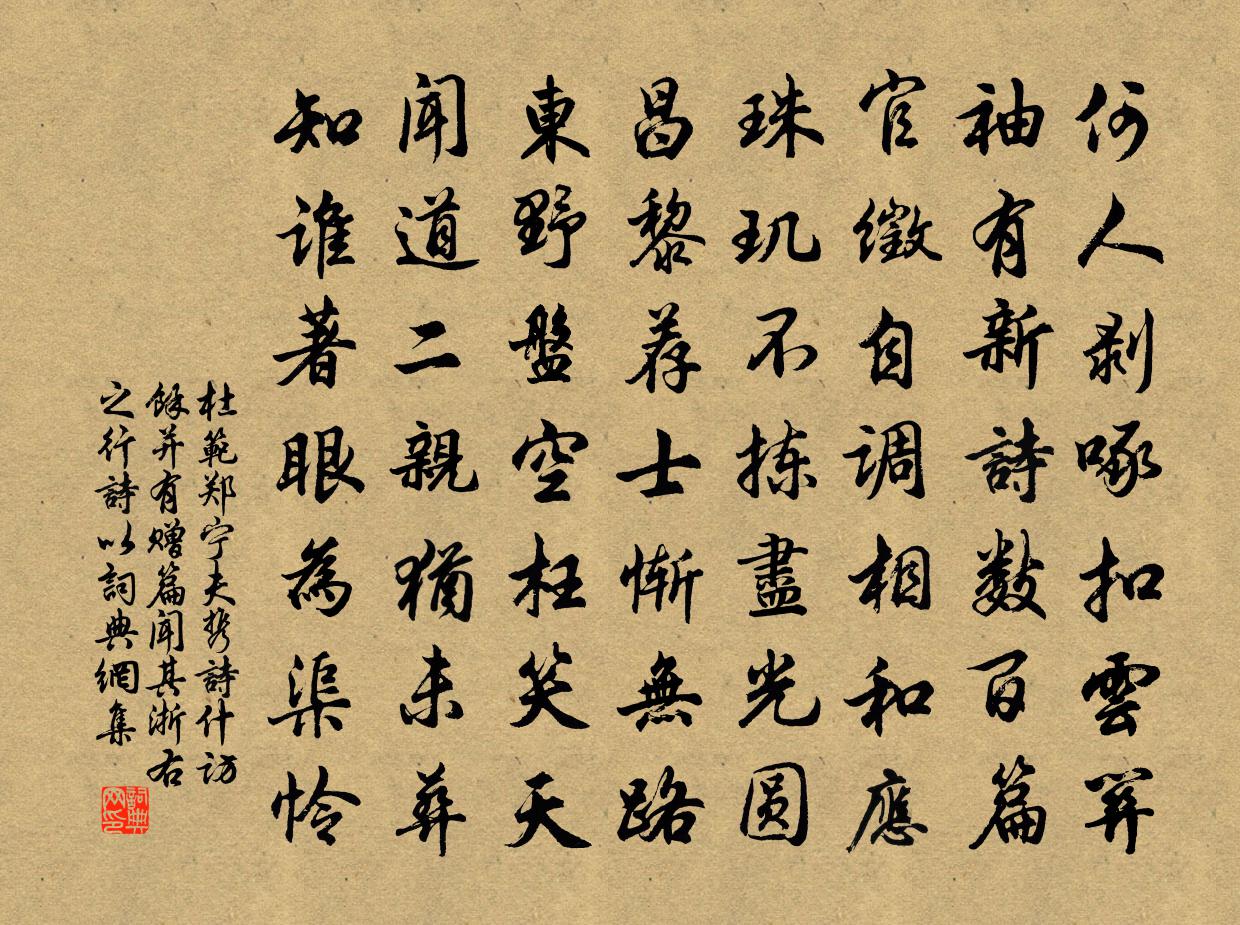 何人剥啄扣雲關
袖有新詩数百篇
宫徵自調相和應
珠玑不拣盡光圆
昌黎荐士慚無路
東野盤空枉笑天
闻道二親猶未葬
知誰著眼為渠怜
杜範郑宁夫携詩什访
餘并有赠篇闻其浙右
之行詩以詞典網集
詞典网印